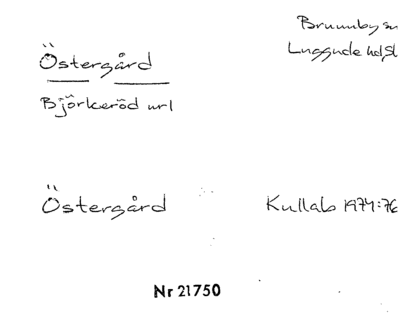 Östergård
Brunnby sn
Luggude hd, Sk
Björkeröd url
Östergård
Kullab 1974:76
Nr 21750